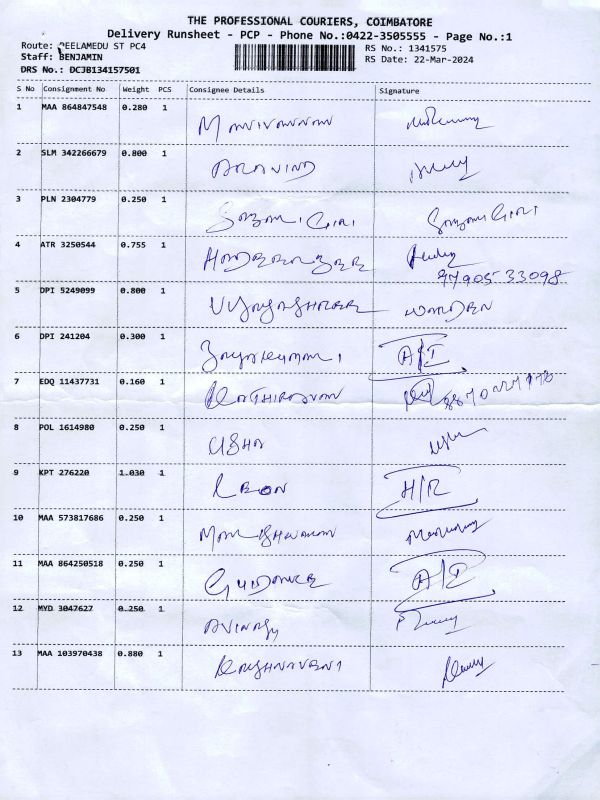 THE PROFESSIONAL COURIERS, COIMBATORE
Delivery Runsheet - PCP - Phone No.:0422-3505555 - Page No.:1
Route: PEELAMEDU ST PC4 RS No.: 1341575
Staff: BENJAMIN RS Date: 22-Mar-2024
DRS No.: DCJB134157501
S No Consignment No Weight PCS Consignee Details Signature
1 MAA 864847548 0.280 1 Manivannan
2 SLM 342266679 0.800 1 ARAVIND
3 PLN 2304779 0.250 1 GIRI GIRI
4 ATR 3250544 0.755 1
97905 33098
5 DPI 5249099 0.800 1 WARDEN
6 DPI 241204 0.300 1 A/I
7 EDQ 11437731 0.160 1 KATHIRAVAN
8 POL 1614980 0.250 1 USHA
9 KPT 276220 1.030 1 LEON H/R
10 MAA 573817686 0.250 1
11 MAA 864250518 0.250 1 GUIDANCE A/I
12 MYD 3047627 0.250 1 AVINASH
13 MAA 103970438 0.880 1 KRISHNAVENI